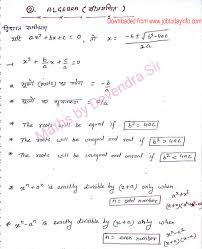 ②. ALGEBRA (बीजगणित)
Downloaded from www.jobtodayinfo.com
द्विघात समीकरण
यदि ax²+bx+c=0, तो x = -b±√b²-4ac / 2a
→ x² + b/a x + c/a = 0
* मूलों (roots) का योग = -b/a
* मूलों का गुणनफल = c/a
* The roots will be equal if b²=4ac
* The roots will be unequal and real if b²>4ac
* The roots will be unequal and unreal if b²<4ac
* xⁿ+aⁿ is exactly divisible by (x+a) only when
n = odd number
* xⁿ-aⁿ is exactly divisible by (x+a) only when
n = even number
Maths by Devendra Sir